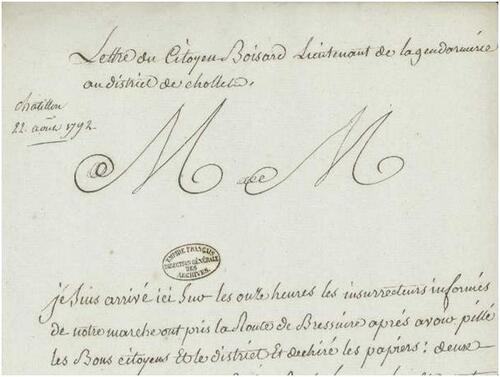 Lettre du Citoyen Boisard Lieutenant de la gendarmérie
au district de chollet.
chatillon
22. août 1792.
M M
EMPIRE FRANÇAIS
DIRECTION GÉNÉRALE
DES
ARCHIVES.
je suis arrivé ici sur les onze heures les insurrecteurs informés
de notre marche ont pris la Route de Bressuire aprés avoir pillé
les Bons citoyens Et le district Et dechiré les papiers : deux